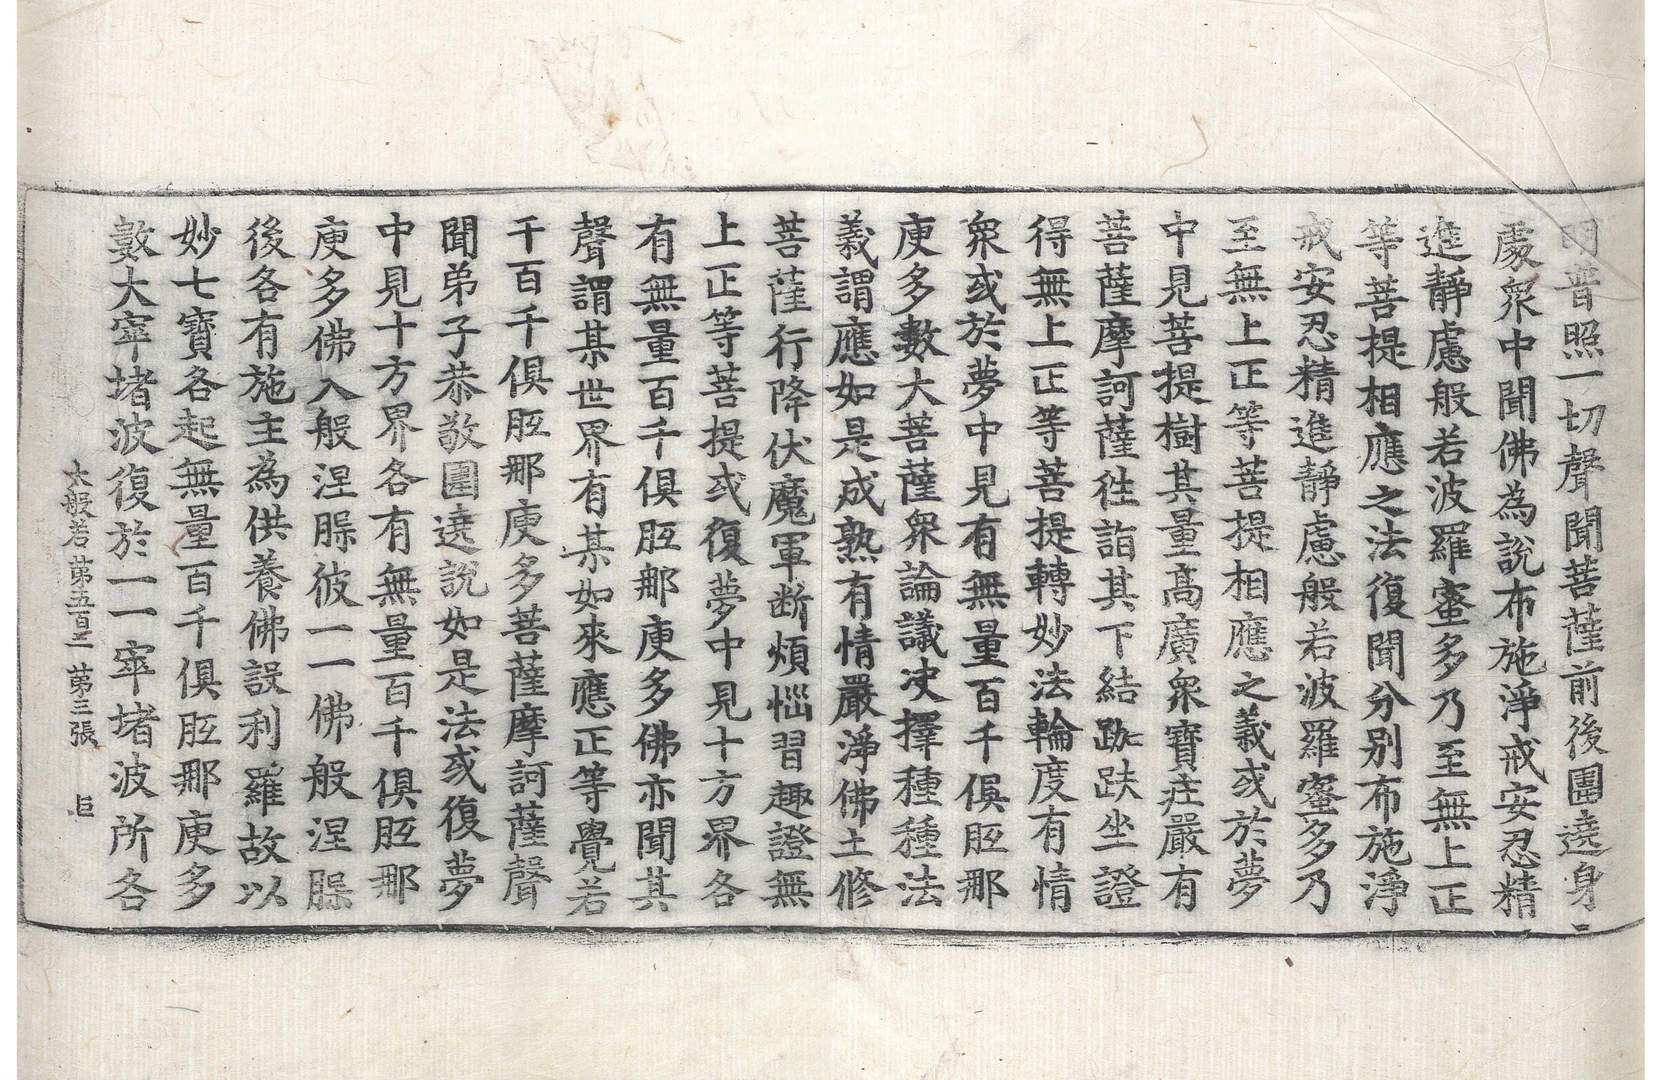 明普照一切聲聞菩薩前後圍遶身
處衆中聞佛為說布施淨戒安忍精
進靜慮般若波羅蜜多乃至無上正
等菩提相應之法復聞分別布施淨
戒安忍精進靜慮般若波羅蜜多乃
至無上正等菩提相應之義或於夢
中見菩提樹其量高廣衆寶莊嚴有
菩薩摩訶薩徃詣其下結跏趺坐證
得無上正等菩提轉妙法輪度有情
衆或於夢中見有無量百千俱胝那
庾多數大菩薩衆論議决擇種種法
義謂應如是成熟有情嚴淨佛土修
菩薩行降伏魔軍断煩惱習趣證無
上正等菩提或復夢中見十方界各
有無量百千俱胝那庾多佛亦聞其
聲謂某世界有某如來應正等覺若
千百千俱胝那庾多菩薩摩訶薩聲
聞弟子恭敬圍遶說如是法或復夢
中見十方界各有無量百千俱胝那
庾多佛入般涅槃彼一一佛般涅槃
後各有施主為供養佛設利羅故以
妙七寶各起無量百千俱胝那庾多
數大窣堵波復於一一窣堵波所各
大般若 第五百二 第三張 巨